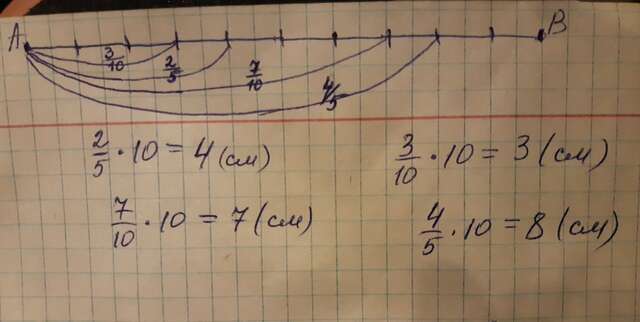 A B
3/10 2/5 7/10 4/5
2/5 · 10 = 4 (см) 3/10 · 10 = 3 (см)
7/10 · 10 = 7 (см) 4/5 · 10 = 8 (см)